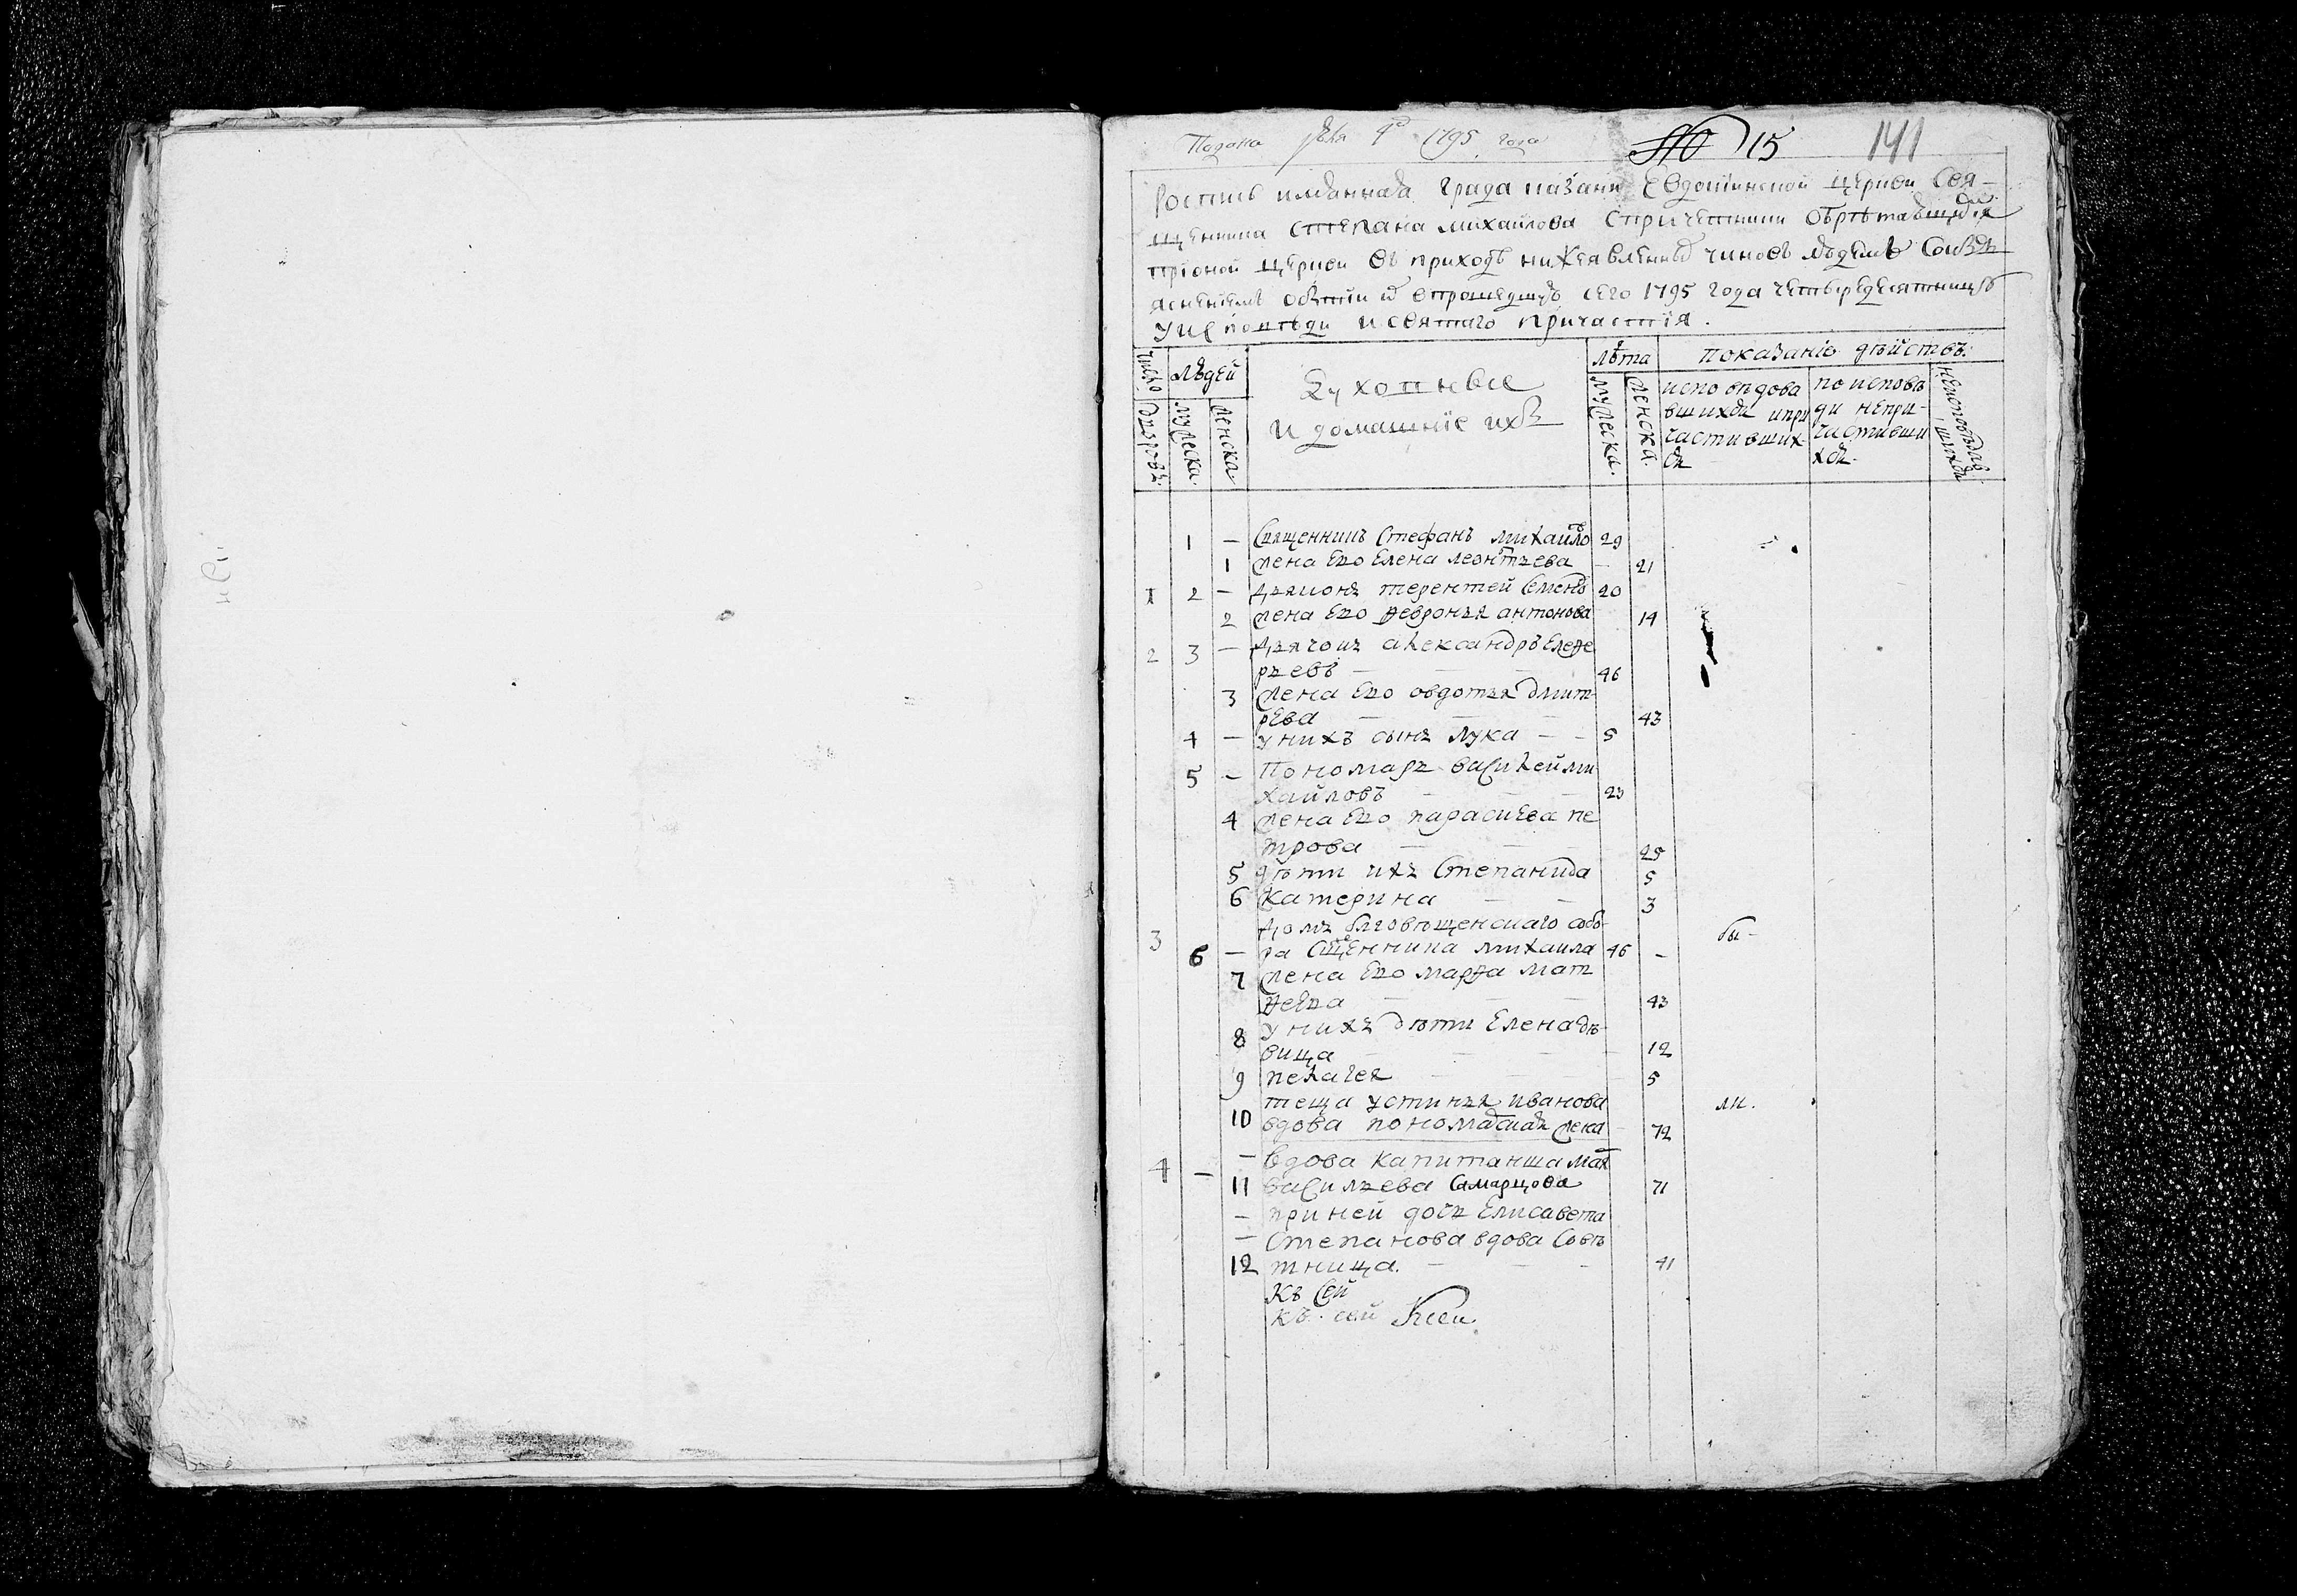 Подана 1795 года № 15 141
Роспись града казани Евдокинской церкви Свя-
щенника Степана михайлова Спричетники
церкви въ приходѣ нижеявленныхъ чиновъ людемъ Соизъ
яснениемъ сего 1795 года четыредесятницѣ
у исповѣди и святаго причастїя.
число дворовъ.
людей
мужеска.
женска.
Духовные
и домашнїе ихъ
лѣта
мужеска.
женска.
показанїе дѣйствъ.
исповѣдова
вшихся и при
частивших
ся
по исповѣ
ди непри-
частивши
хся.
неисповѣдав
шихся
1 — Священникъ Стефанъ михайло 29
1 жена Его Елена леонтьева — 21
1 2 — дьяконъ терентей Семено 20
2 жена Его Ѳевронья антонова 19
2 3 — дьячокъ александръ Елефе
рьевъ — 46
3 жена Его овдотья дмит
рева — 43
4 — у нихъ сынъ лука — — 5
5 — Пономарь василей ми
хайловъ — 23
4 жена Его параскева пе
трова — 25
5 дѣти ихъ Степанида 5
6 Катерина — 3
3 домъ благовѣщенскаго собо
6 — ра Сщенника михаила 46 — бы-
7 жена Его марѳа мат
ѳева — 43
8 у нихъ дѣти Елена дѣ-
вица — 12
9 пелагея — 5
теща устинья иванова ли.
10 вдова жена 72
4 — — вдова капитанша
11 васильева 71
— при ней дочь Елисавета
— Степанова вдова Совѣ
12 тница. — 41
Къ Сей
къ. сей Ксеи